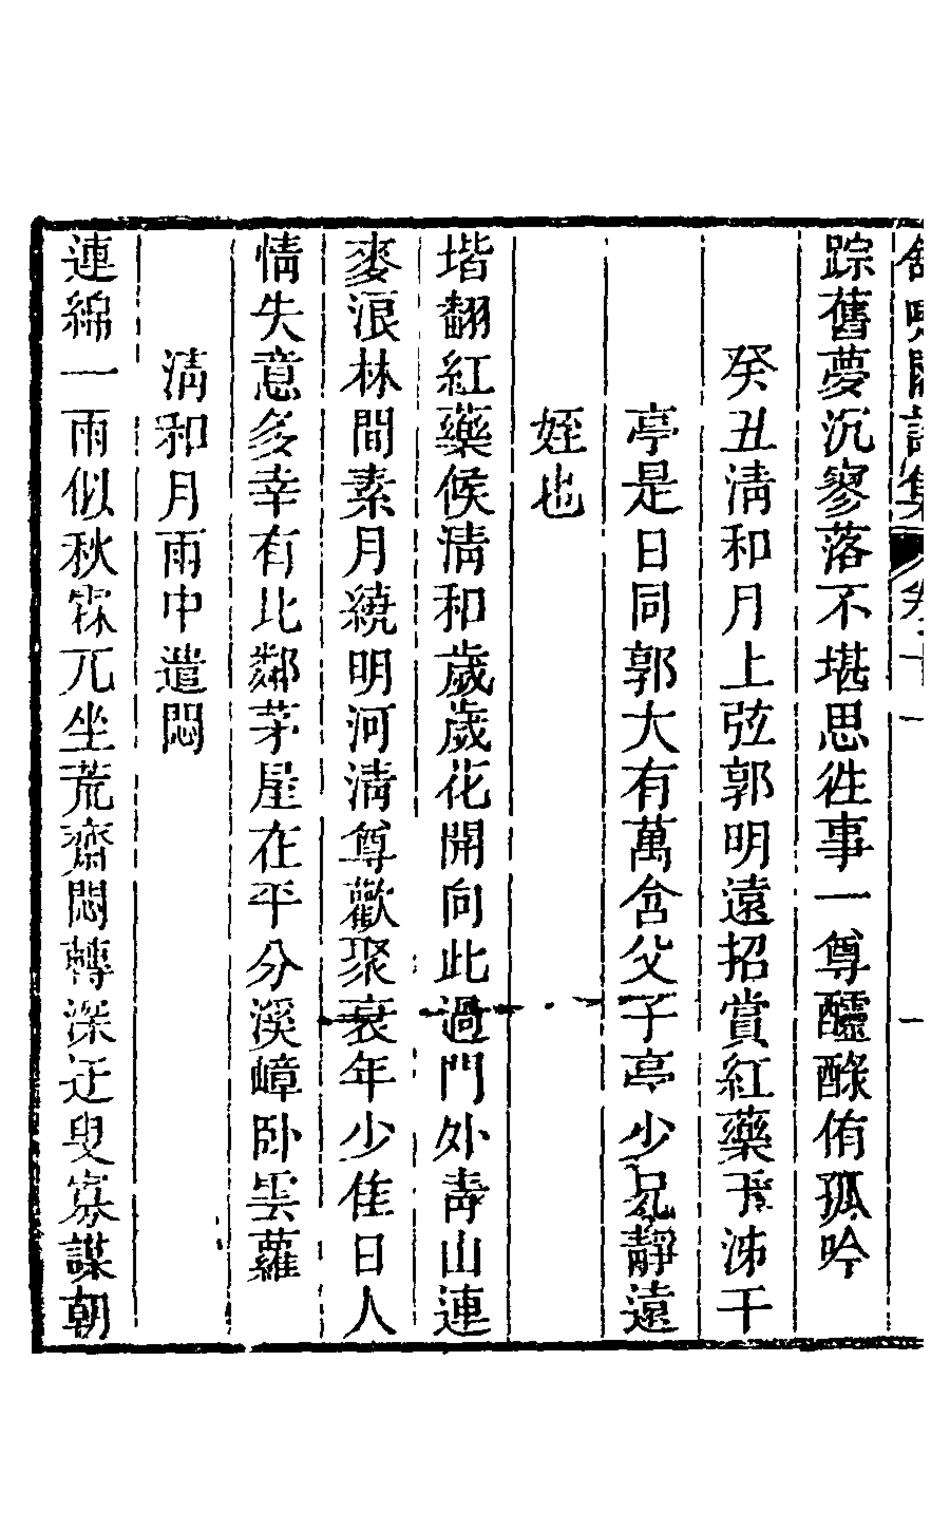 踪舊夢沉寥落不堪思徃事一尊醽醁侑孤吟
癸丑淸和月上弦郭明遠招賞紅藥于泲干
亭是日同郭大有萬含父子亭少兄靜遠
姪也
堦翻紅藥候淸和歲歲花開向此過門外靑山連
麥浪林間素月繞明河淸尊歡聚衰年少佳日人
情失意多幸有比鄰茅屋在平分溪嶂卧雲蘿
淸和月雨中遣悶
連綿一雨似秋霖兀坐荒齋悶轉深迂叟寡謀朝